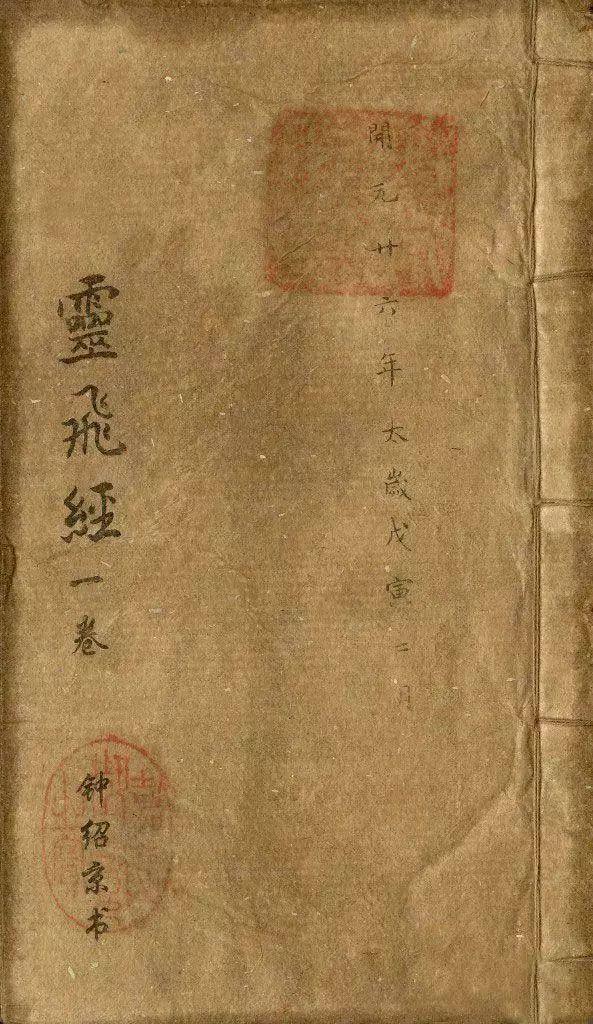 開元廿六年太歲戊寅二月
靈飛經一卷
钟绍京书